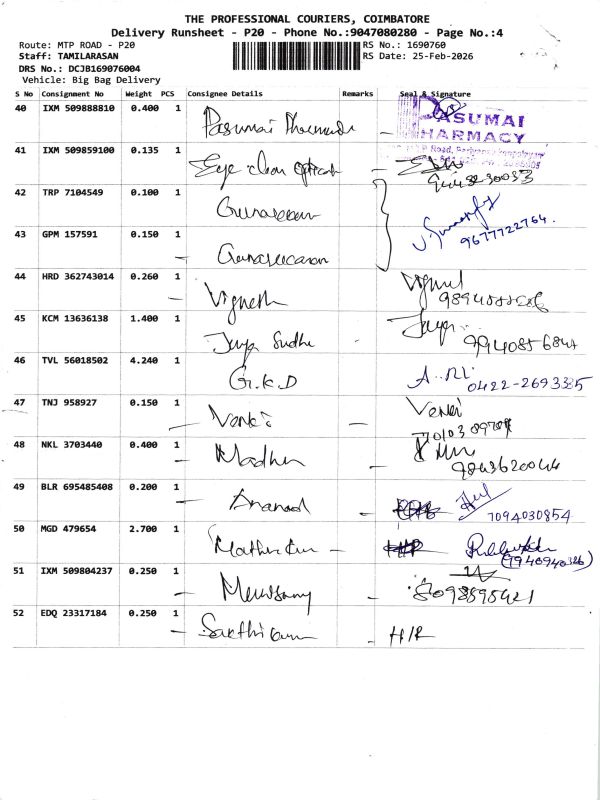 THE PROFESSIONAL COURIERS, COIMBATORE
Delivery Runsheet - P20 - Phone No.:9047080280 - Page No.:4
Route: MTP ROAD - P20
RS No.: 1690760
Staff: TAMILARASAN
RS Date: 25-Feb-2026
DRS No.: DCJB169076004
Vehicle: Big Bag Delivery
S No Consignment No Weight PCS Consignee Details Remarks Seal & Signature
40 IXM 509888810 0.400 1 Pasumai
PASUMAI
PHARMACY
41 IXM 509859100 0.135 1 Eye
42 TRP 7104549 0.100 1 Gunaseeran
9677722764.
43 GPM 157591 0.150 1 Gunaseearan
44 HRD 362743014 0.260 1 Vignesh
45 KCM 13636138 1.400 1 Jaya Sudha Jaya
46 TVL 56018502 4.240 1 G.K.D
0422-2693385
47 TNJ 958927 0.150 1 Venki Venki
48 NKL 3703440 0.400 1 Madhu
9843620044
49 BLR 695485408 0.200 1 Anand
7094030854
50 MGD 479654 2.700 1
51 IXM 509804237 0.250 1
8098595421
52 EDQ 23317184 0.250 1 Sakthi H/R